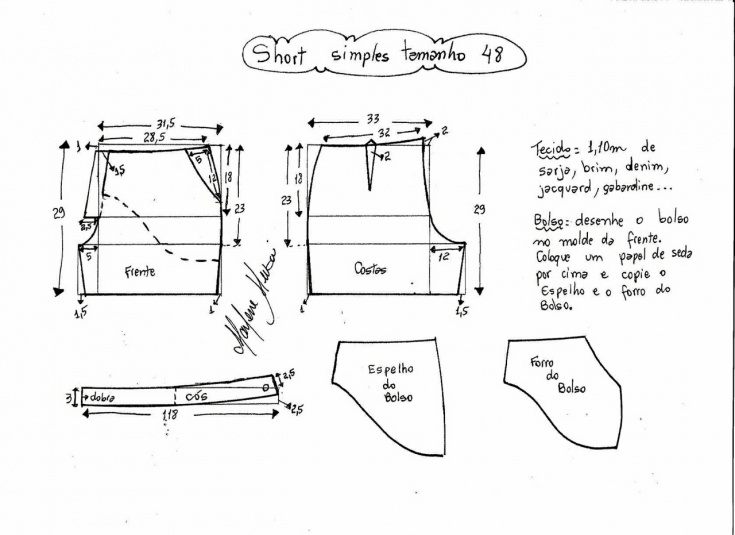 Short simples tamanho 48
31,5
28,5
1
1,5
5
12
18
23
29
3,5
5
Frente
1,5
1
33
32
2
2
18
23
29
12
Costas
1
1,5
Tecido = 1,10m de
sarja, brim, denim,
jacquard, gabardine...
Bolso = desenhe o bolso
no molde da frente.
Coloque um papel de seda
por cima e copie o
Espelho e o forro do
Bolso.
Marlene Mukai
3
dobra
cós
3,5
2,5
1,18
Espelho
do
Bolso
Forro
do
Bolso